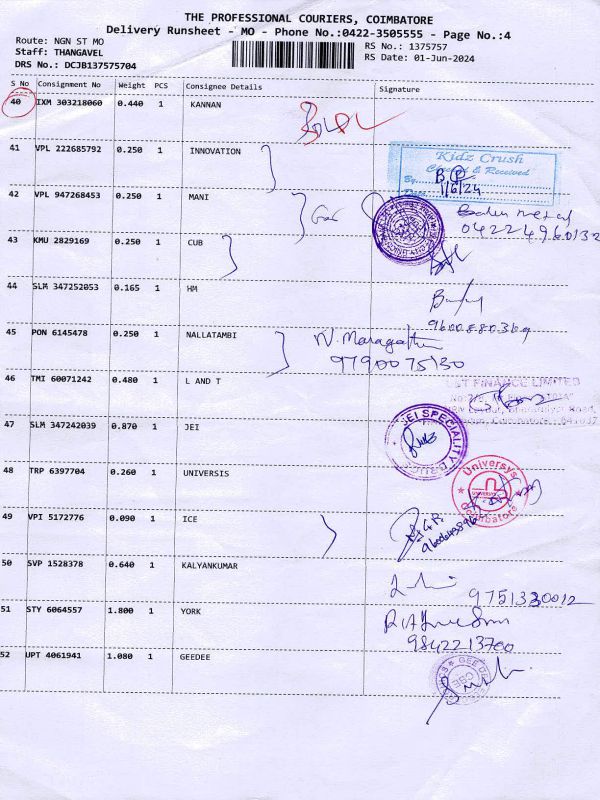 THE PROFESSIONAL COURIERS, COIMBATORE
Delivery Runsheet - MO - Phone No.:0422-3505555 - Page No.:4
Route: NGN ST MO
RS No.: 1375757
Staff: THANGAVEL
RS Date: 01-Jun-2024
DRS No.: DCJB137575704
S No Consignment No Weight PCS Consignee Details Signature
40 IXM 303218060 0.440 1 KANNAN
41 VPL 222685792 0.250 1 INNOVATION
Kidz Crush
& Received
By
Date
1/6/24
42 VPL 947268453 0.250 1 MANI
04224960132
43 KMU 2829169 0.250 1 CUB
44 SLM 347252053 0.165 1 HM
9600880369
45 PON 6145478 0.250 1 NALLATAMBI
9790075130
46 TMI 60071242 0.480 1 L AND T
L&T FINANCE LIMITED
47 SLM 347242039 0.870 1 JEI
JEI SPECIALITY
48 TRP 6397704 0.260 1 UNIVERSIS
Universys
Coimbatore
49 VPI 5172776 0.090 1 ICE
50 SVP 1528378 0.640 1 KALYANKUMAR
9751330012
51 STY 6064557 1.800 1 YORK
9842213700
52 UPT 4061941 1.080 1 GEEDEE